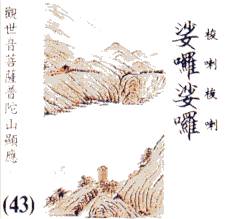 梭喇梭喇
娑囉娑囉
觀世音菩薩普陀山顯應
(43)